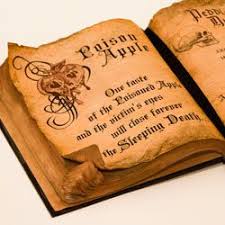 Poison
Apple
One taste
of the Poisoned Apple
and the victim's eyes
will close forever
in the Sleeping Death.